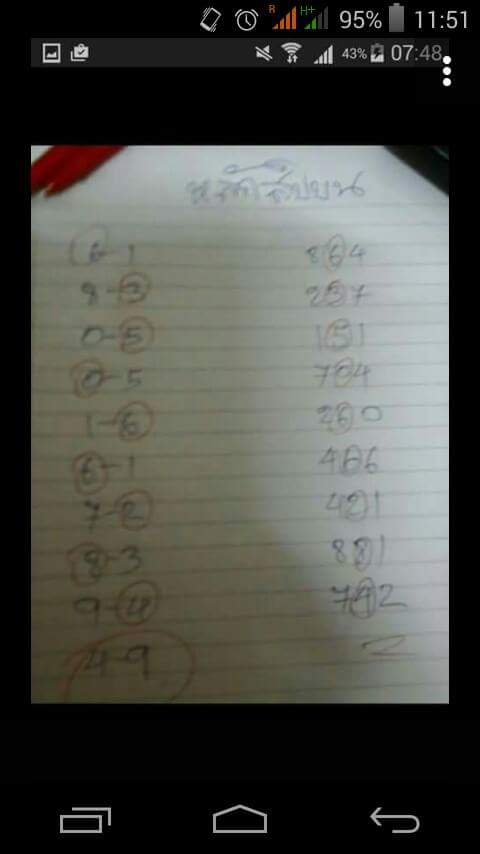 R H+ 95% 11:51
43% 07:48
หลักสิบบน
6-1 864
8-3 237
0-5 151
0-5 704
1-6 260
6-1 466
7-2 421
8-3 881
9-4 742
4-9